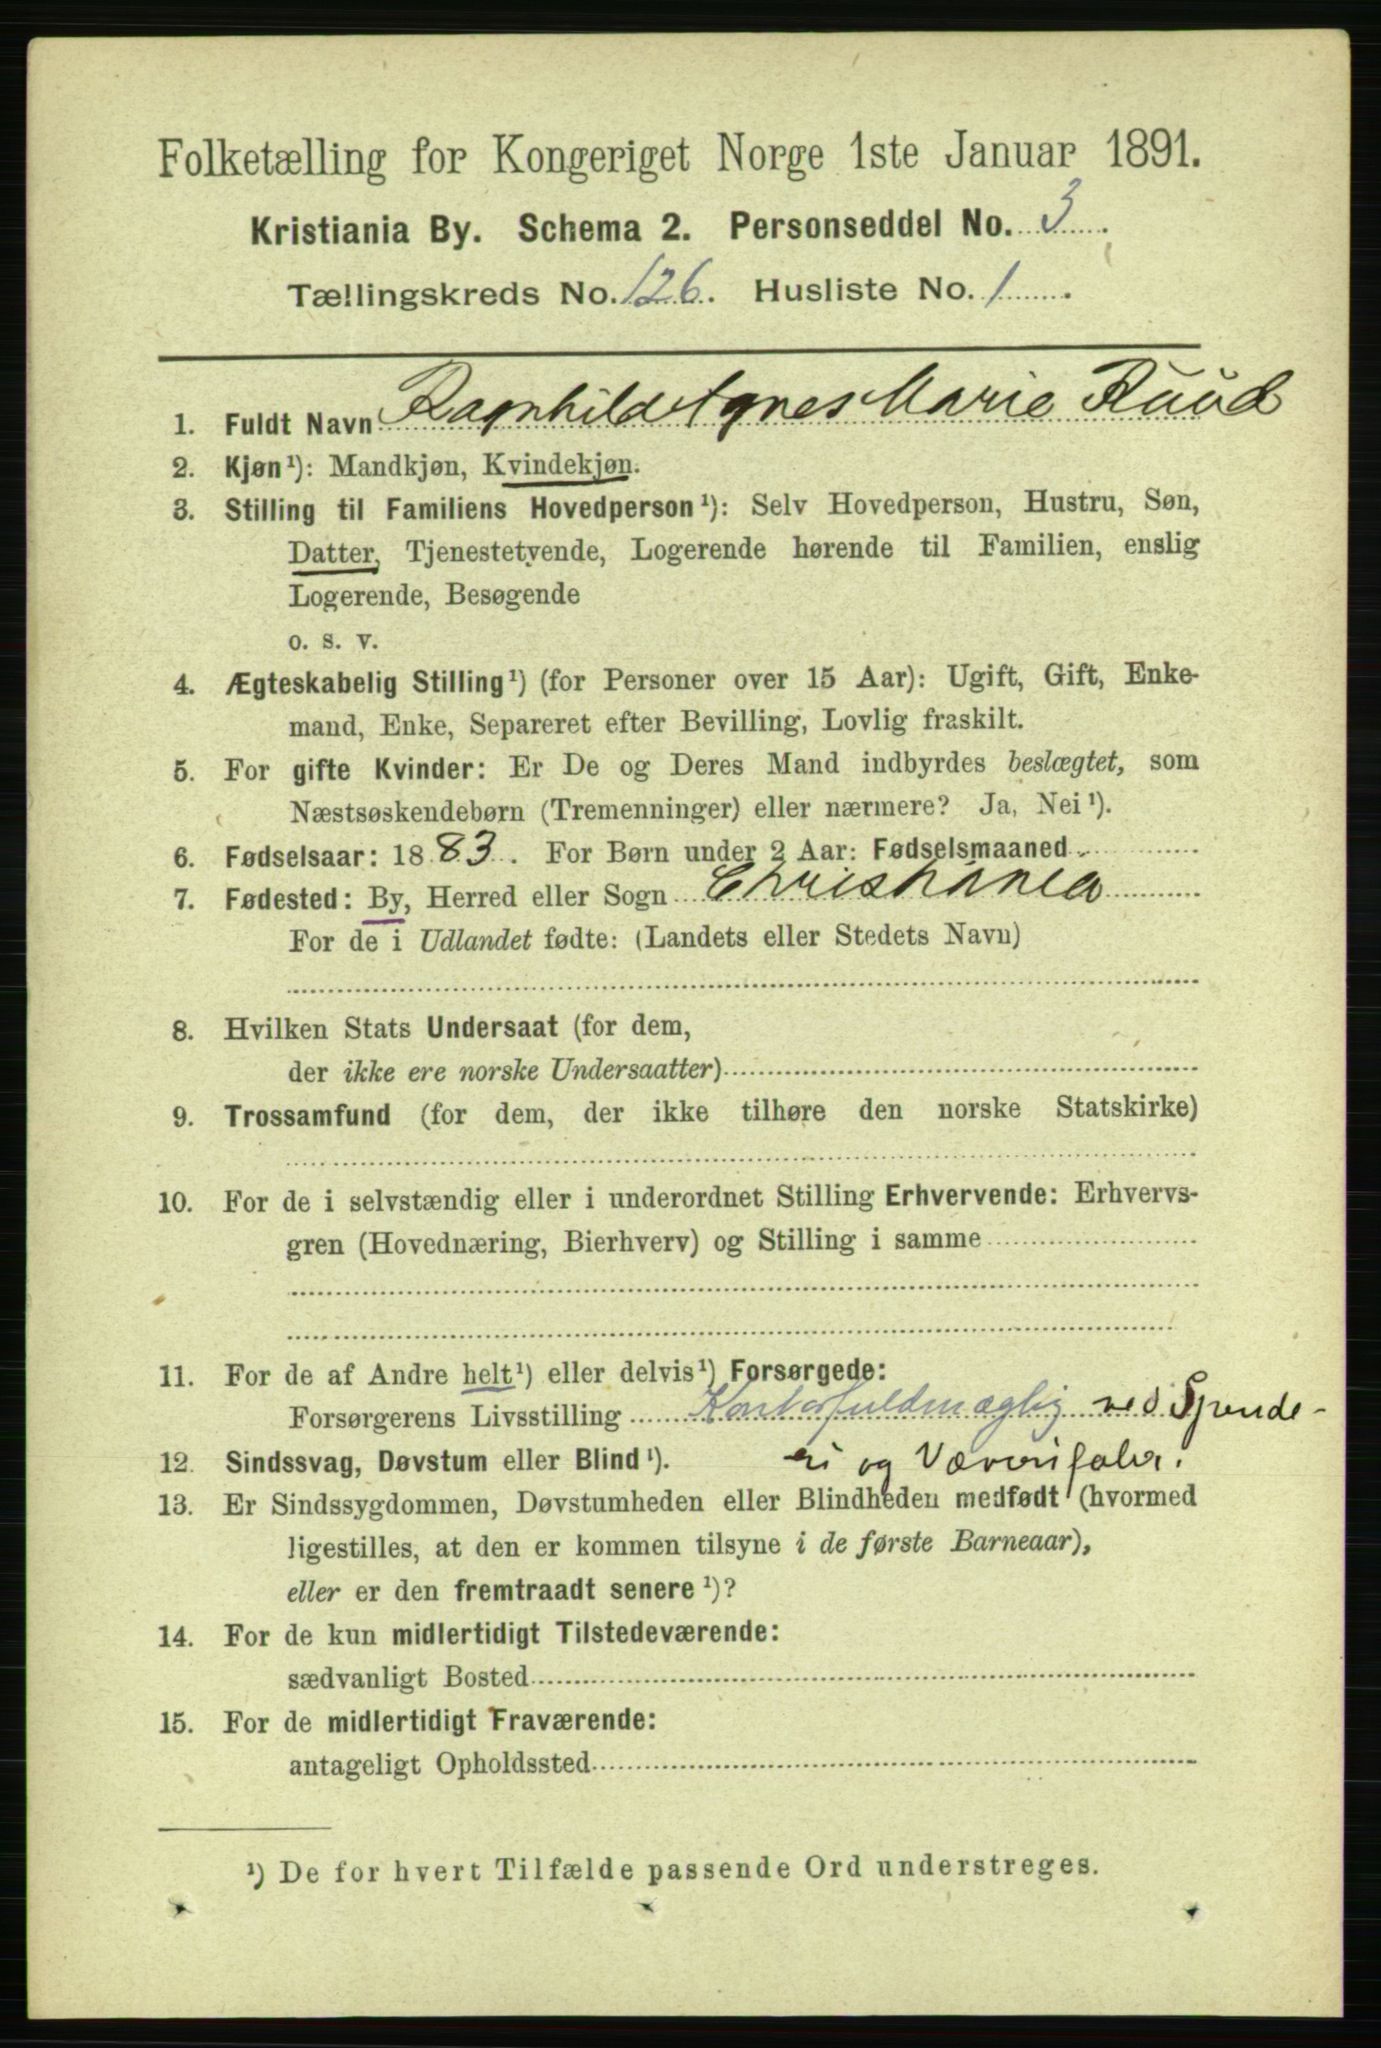 Folketælling for Kongeriget Norge 1ste Januar 1891.
Kristiania By. Schema 2. Personseddel No. 3
Tællingskreds No. 126. Husliste No. 1
1. Fuldt Navn Ragnhild Agnes Marie Ruud
2. Kjøn¹): Mandkjøn, Kvindekjøn.
3. Stilling til Familiens Hovedperson¹): Selv Hovedperson, Hustru, Søn,
Datter, Tjenestetyende, Logerende hørende til Familien, enslig
Logerende, Besøgende
o. s. v.
4. Ægteskabelig Stilling¹) (for Personer over 15 Aar): Ugift, Gift, Enke-
mand, Enke, Separeret efter Bevilling, Lovlig fraskilt.
5. For gifte Kvinder: Er De og Deres Mand indbyrdes beslægtet, som
Næstsøskendebørn (Tremenninger) eller nærmere? Ja, Nei¹).
6. Fødselsaar: 1883. For Børn under 2 Aar: Fødselsmaaned
7. Fødested: By, Herred eller Sogn Christiania
For de i Udlandet fødte: (Landets eller Stedets Navn)
8. Hvilken Stats Undersaat (for dem,
der ikke ere norske Undersaatter)
9. Trossamfund (for dem, der ikke tilhøre den norske Statskirke)
10. For de i selvstændig eller i underordnet Stilling Erhvervende: Erhvervs-
gren (Hovednæring, Bierhverv) og Stilling i samme
11. For de af Andre helt¹) eller delvis¹) Forsørgede:
Forsørgerens Livsstilling Kontorfuldmægtig ved Spinde-
12. Sindssvag, Døvstum eller Blind¹). ri og Væverifabr.
13. Er Sindssygdommen, Døvstumheden eller Blindheden medfødt (hvormed
ligestilles, at den er kommen tilsyne i de første Barneaar),
eller er den fremtraadt senere¹)?
14. For de kun midlertidigt Tilstedeværende:
sædvanligt Bosted
15. For de midlertidigt Fraværende:
antageligt Opholdssted
¹) De for hvert Tilfælde passende Ord understreges.